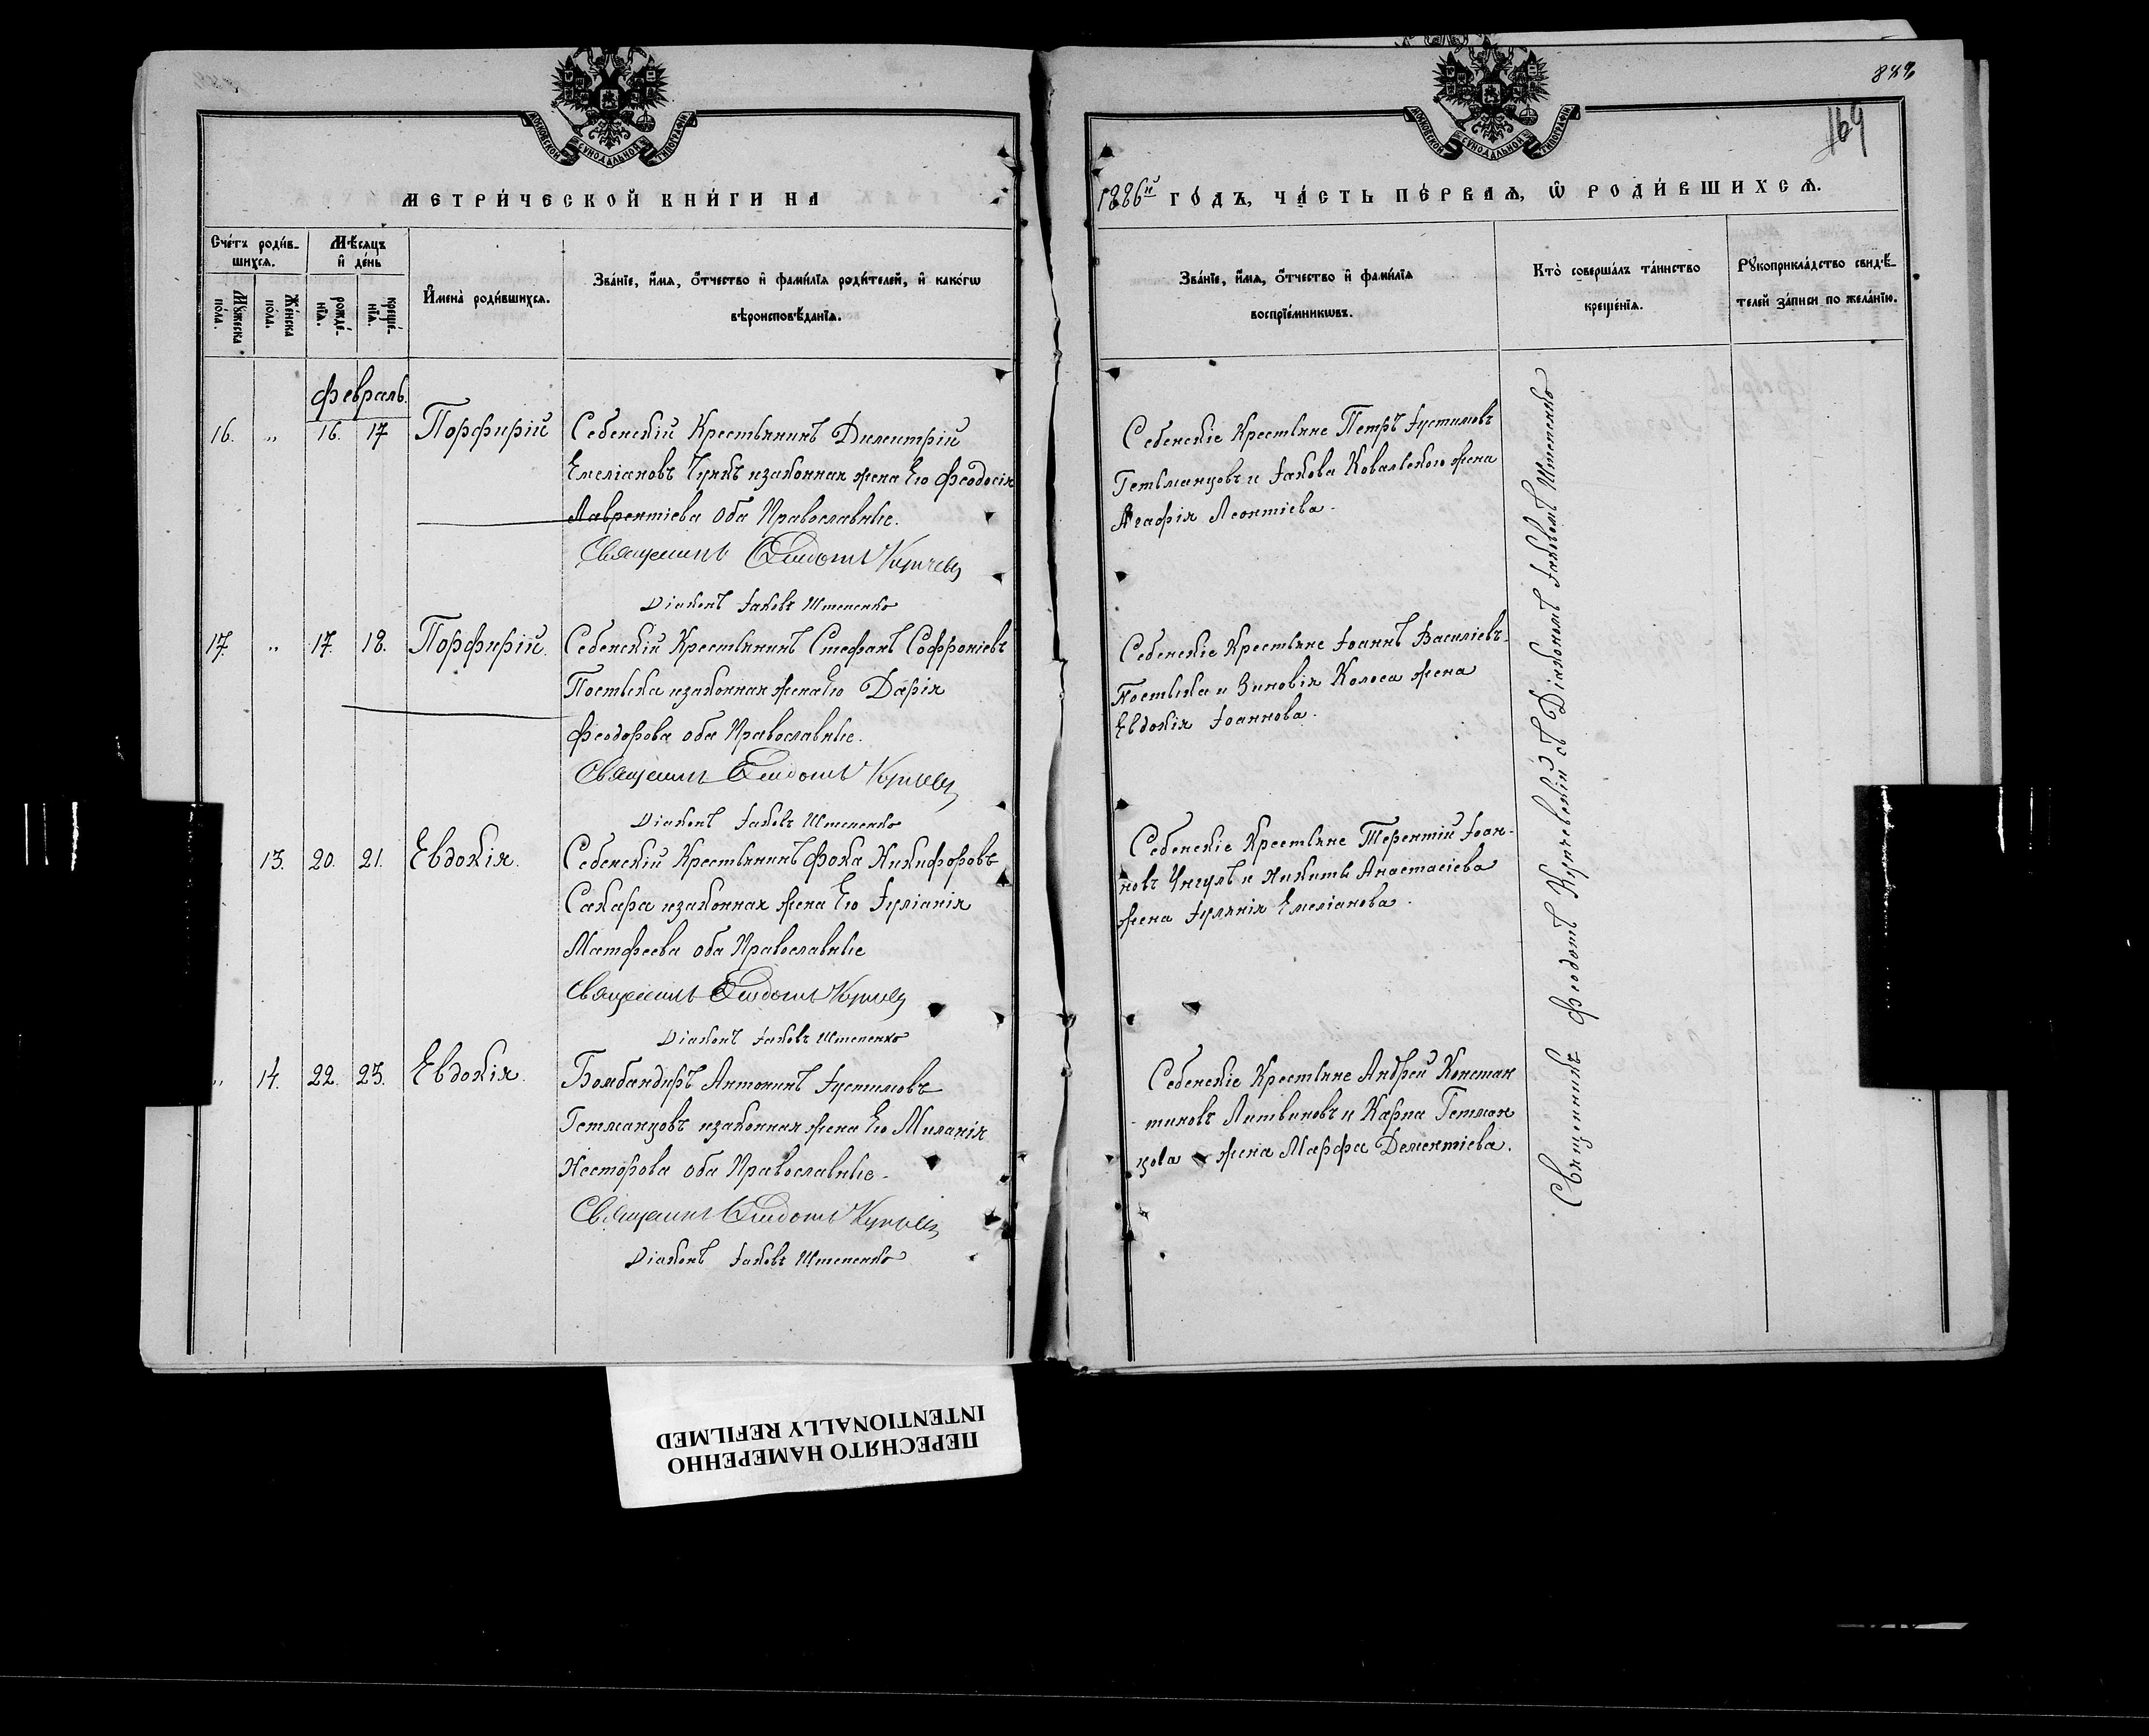 849
169
МОСКОВСКОЙ СУНОДАЛЬНОЙ ТИПОГРАФІИ
МОСКОВСКОЙ СУНОДАЛЬНОЙ ТИПОГРАФІИ
МЕТРИ́ЧЕСКОЙ КНИ́ГИ НА
1886й ГО́ДЪ, ЧА́СТЬ ПЕ́РВАѦ, Ѡ РОДИ́ВШИХСѦ.
Сче́тъ роди́в-
шихсѧ.
Мѣ́сѧцъ
и де́нь
Мꙋ́жеска
по́ла.
Же́нска
по́ла.
рожде́-
нїѧ.
креще́-
нїѧ.
И҆мена̀ роди́вшихсѧ.
Зва́нїе, и҆́мѧ, ѻ҆́тчество и҆ фами́лїѧ роди́телей, и҆ како́гѡ
вѣроисповѣ́данїѧ.
Зва́нїе, и҆́мѧ, ѻ҆́тчество и҆ фами́лїѧ
воспрїе́мникѡвъ.
Кто̀ соверша́лъ та́инство
креще́нїѧ.
Рꙋкоприкла́дство свидѣ́-
телей за́писи по жела́нїю.
Февраль.
16. „ 16. 17 Порфирій
Себенскій Крестьянинъ Димитрій
Емеліановъ Чункъ изаконная жена Его Феодосія
Лаврентіева оба Православные.
Священникъ Феодотъ
Діаконъ Іаковъ Штепенко
Себенскіе Крестьяне Петръ Іустиновъ
Гетьманцовъ и Іакова Ковальского жена
Агафія Леонтіева.
17. „ 17. 18. Порфирій.
Себенскій Крестьянинъ Стефанъ Софроніевъ
Постыка изаконная жена Его Дарія
Феодорова оба Православные.
Священникъ Феодотъ
Діаконъ Іаковъ Штепенко
Себенскіе Крестьяне Іоаннъ Василіевъ
Постыка и Зиновія Колоса жена
Евдокія Іоаннова.
13. 20. 21. Евдокія.
Себенскій Крестьянинъ Фока Никифоровъ
Сакара изаконная жена Его Іуліанія
Матфеева оба Православные
Священникъ Феодотъ
Діаконъ Іаковъ Штепенко
Себенскіе Крестьяне Терентій Іоан-
новъ Унгулъ и Никиты Анастасіева
жена Іулянія Емеліанова.
„ 14. 22. 23. Евдокія.
Бомбандиръ Антонинъ Іустиновъ
Гетманцовъ изаконная жена Его Миланія
Несторова оба Православные.
Священникъ Феодотъ
Діаконъ Іаковъ Штепенко
Себенскіе Крестьяне Андрей Констан
тиновъ Литвиновъ и Карпа Гетман
цова жена Марфа Дементіева.
Священникъ Феодотъ Купчевскій съ Діакономъ Іаковомъ Штепенко
ПЕРЕСНЯТО НАМЕРЕННО
INTENTIONALLY REFILMED